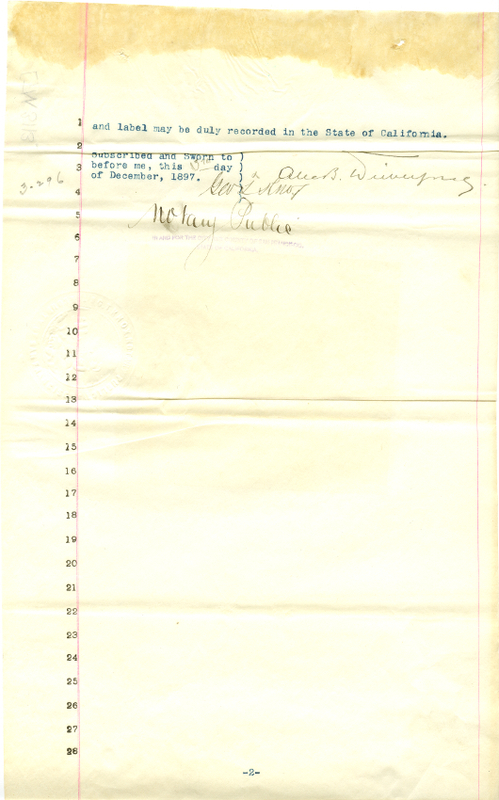 1 and label may be duly recorded in the State of California.
2
3 Subscribed and Sworn to )
before me, this day )
of December, 1897. )
Geo. T. Knox
3-296
4
Notary Public
5
6
7
8
9
10
11
12
13
14
15
16
17
18
19
20
21
22
23
24
25
26
27
28
-2-